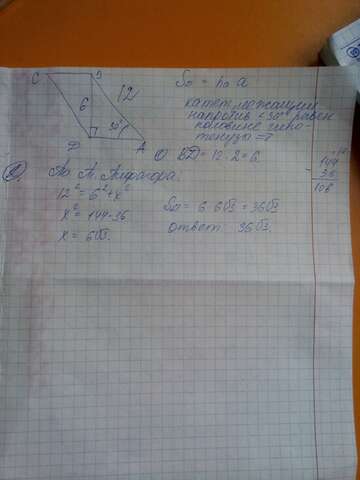 C
B
12
Sп = ha a
6
30°
D
A
катет лежащий
напротив <30° равен
половине гипо-
тенузы =>
① BD = 12 : 2 = 6
② По т. Пифагора.
12² = 6² + x²
x² = 144 - 36
x = 6√3.
Sп = 6 · 6√3 = 36√3
ответ: 36√3
144
- 36
108